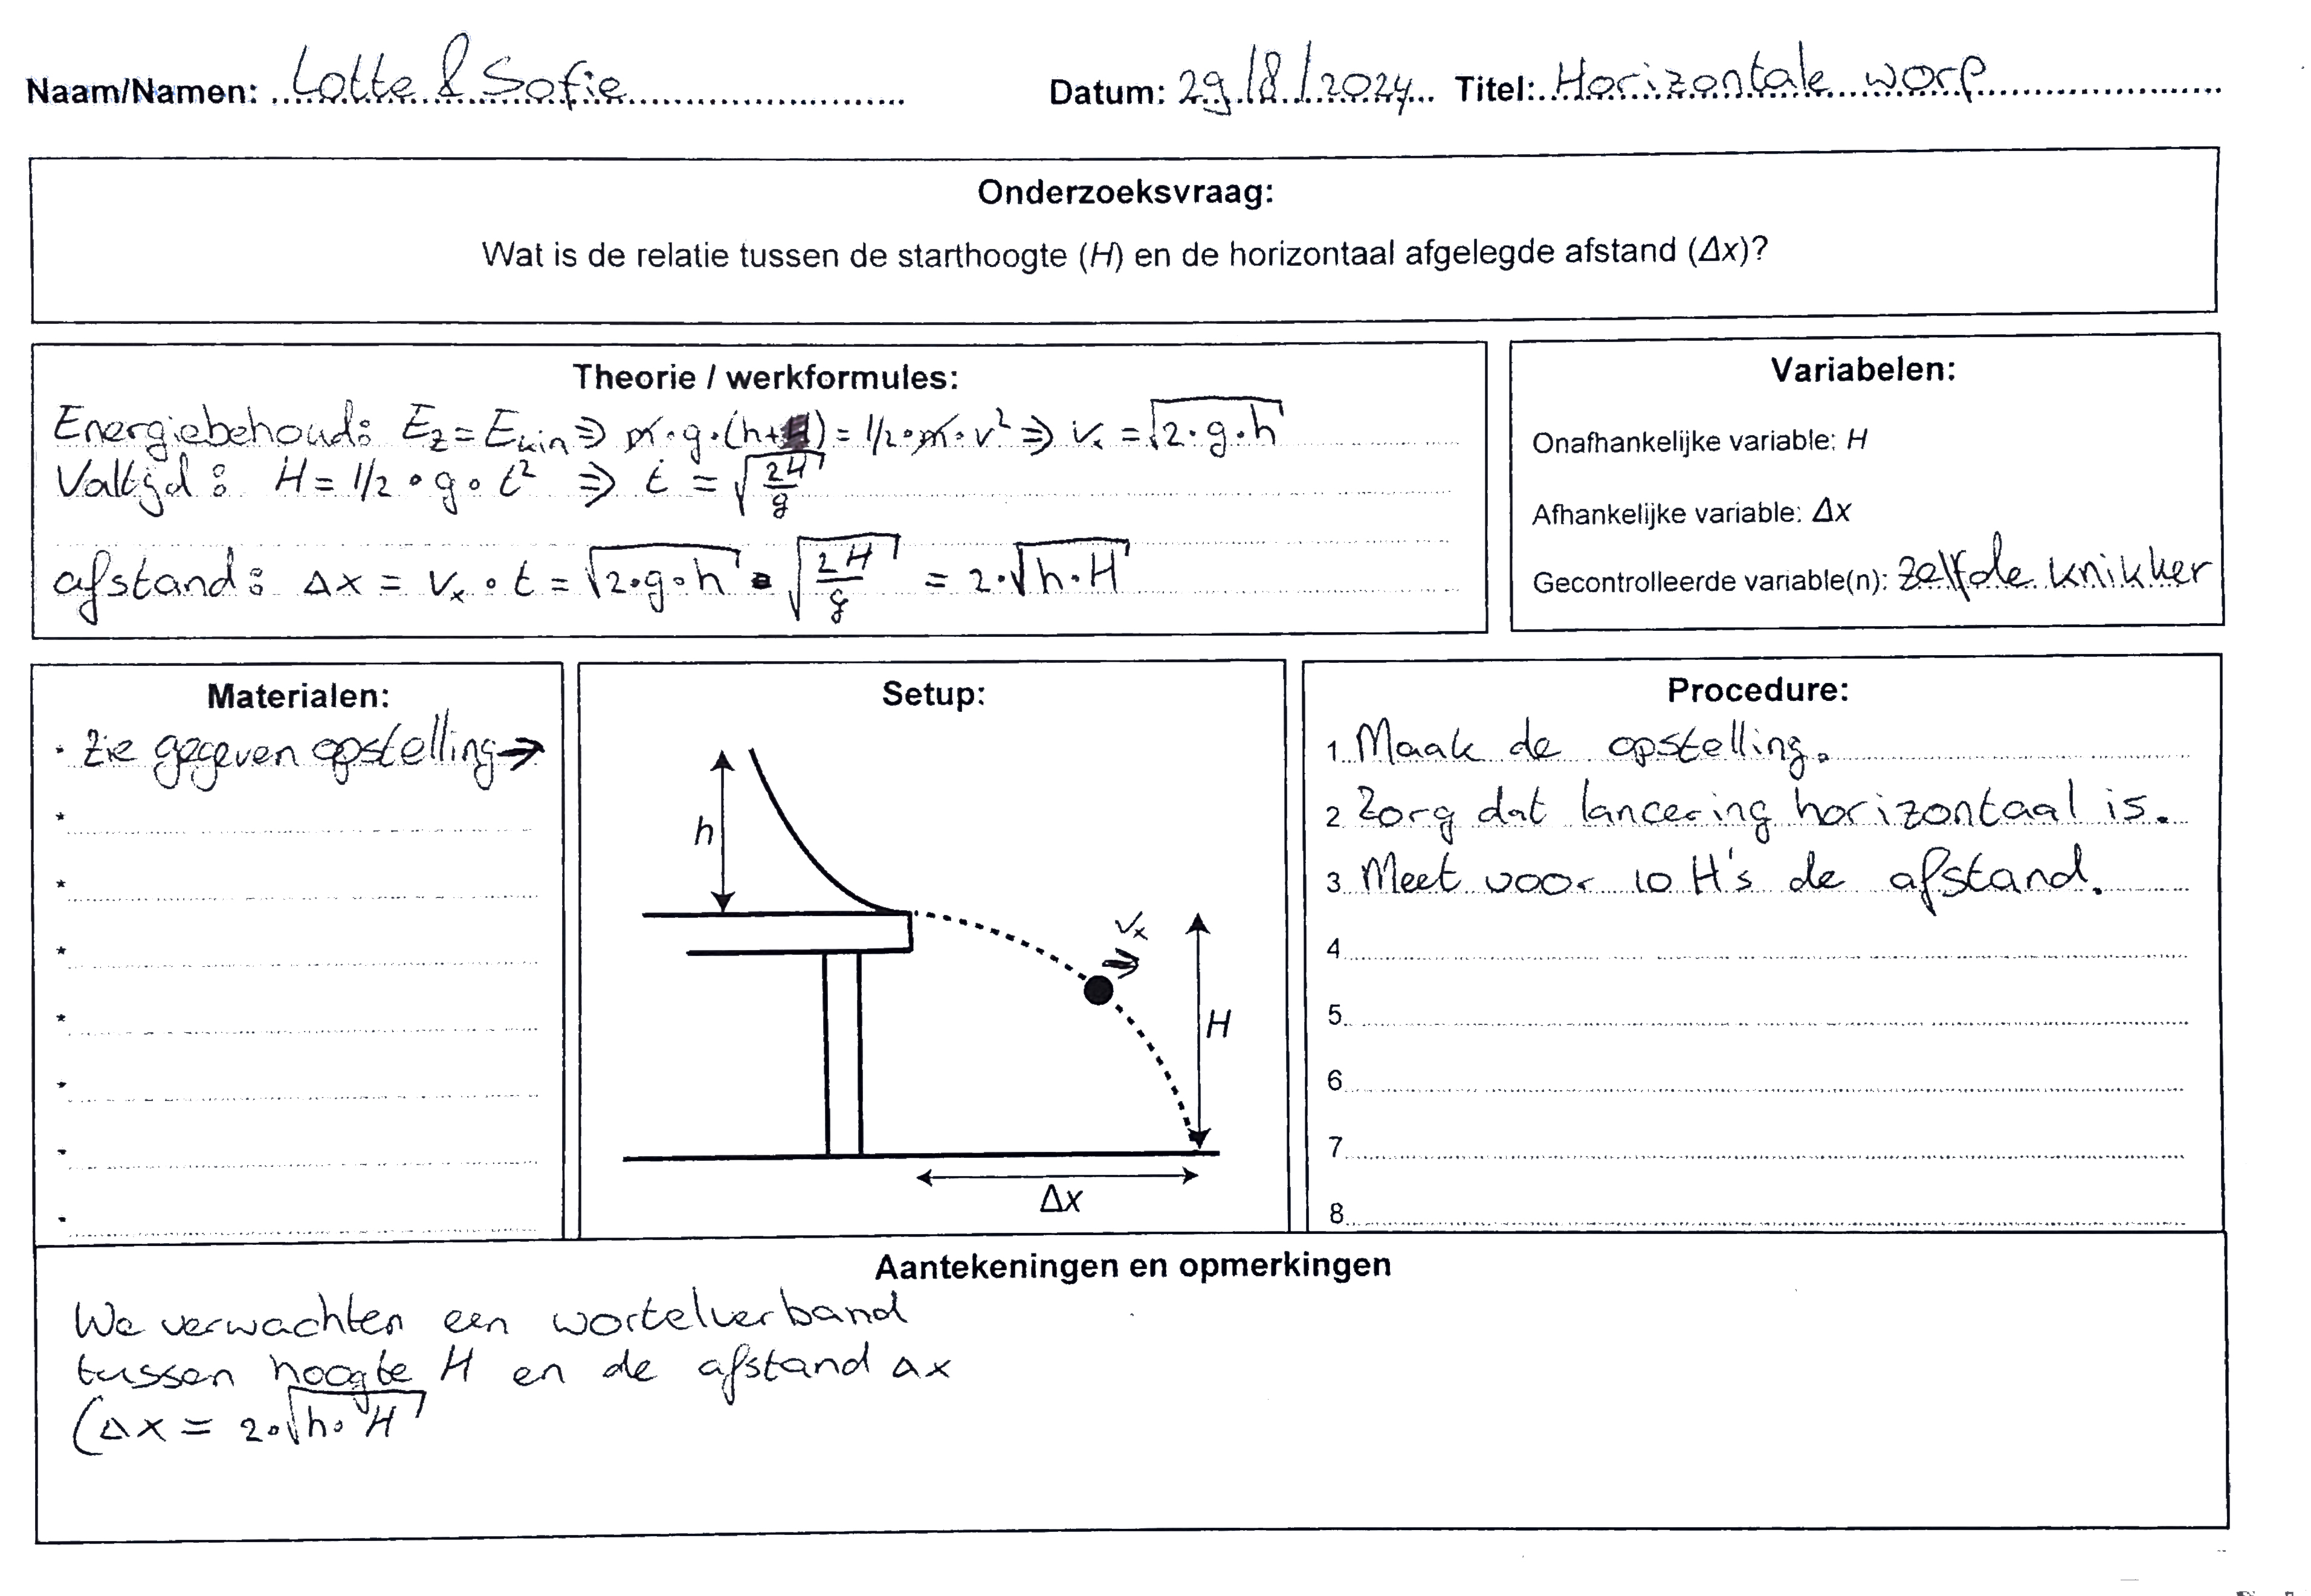 Naam/Namen: Lotte & Sofie Datum: 29/8/2024 Titel: Horizontale worp
Onderzoeksvraag:
Wat is de relatie tussen de starthoogte (H) en de horizontaal afgelegde afstand (Δx)?
Theorie / werkformules:
Energiebehoud: Ez = Ekin ⇒ m·g·(h+H) = 1/2·m·v² ⇒ vx = √2·g·h
Valtijd: H = 1/2·g·t² ⇒ t = √2H/g
afstand: Δx = vx·t = √2·g·h · √2H/g = 2·√h·H
Variabelen:
Onafhankelijke variable: H
Afhankelijke variable: Δx
Gecontrolleerde variable(n): zelfde knikker
Materialen:
· Zie gegeven opstelling →
Setup:
h
vx
H
Δx
Procedure:
1. Maak de opstelling.
2. Zorg dat lancering horizontaal is.
3. Meet voor 10 H's de afstand.
4.
5.
6.
7.
8.
Aantekeningen en opmerkingen
We verwachten een wortelverband
tussen hoogte H en de afstand Δx
(Δx = 2·√h·H